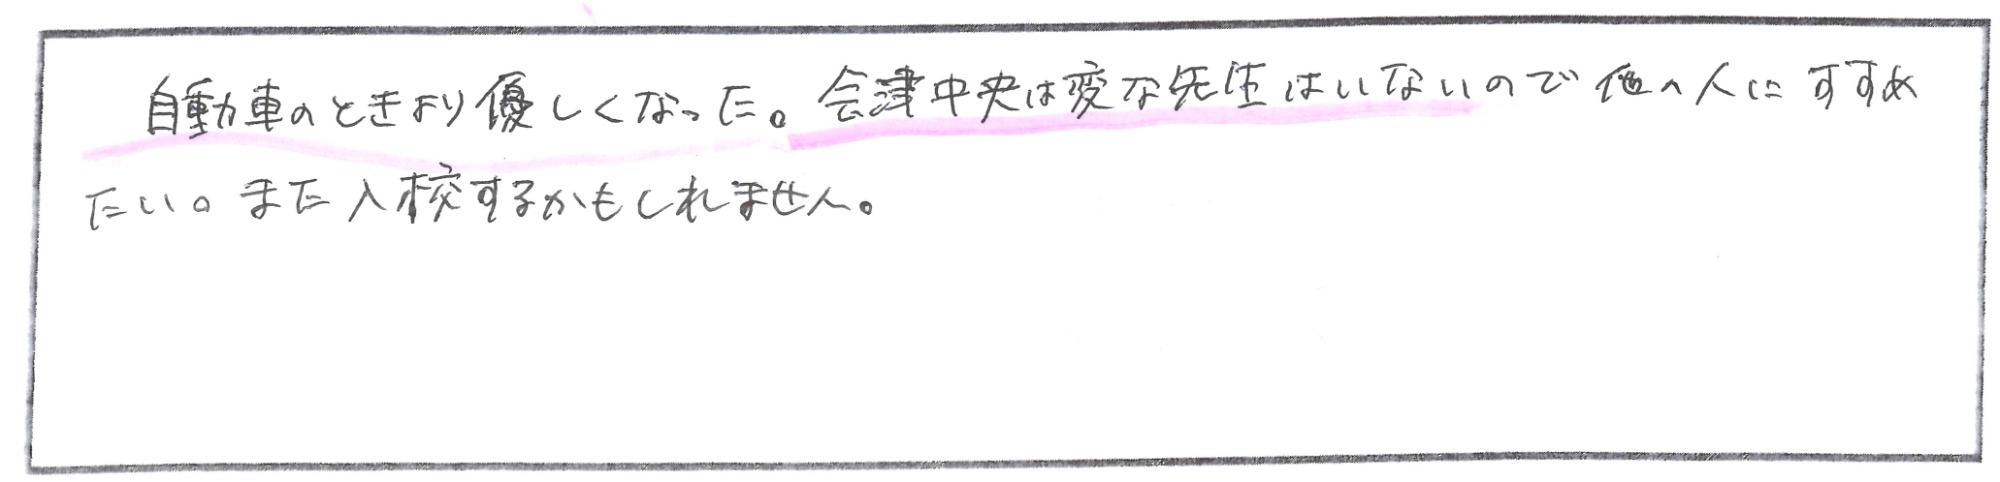 自動車のときより優しくなった。会津中央は変な先生はいないので他の人にすすめ
たい。また入校するかもしれません。